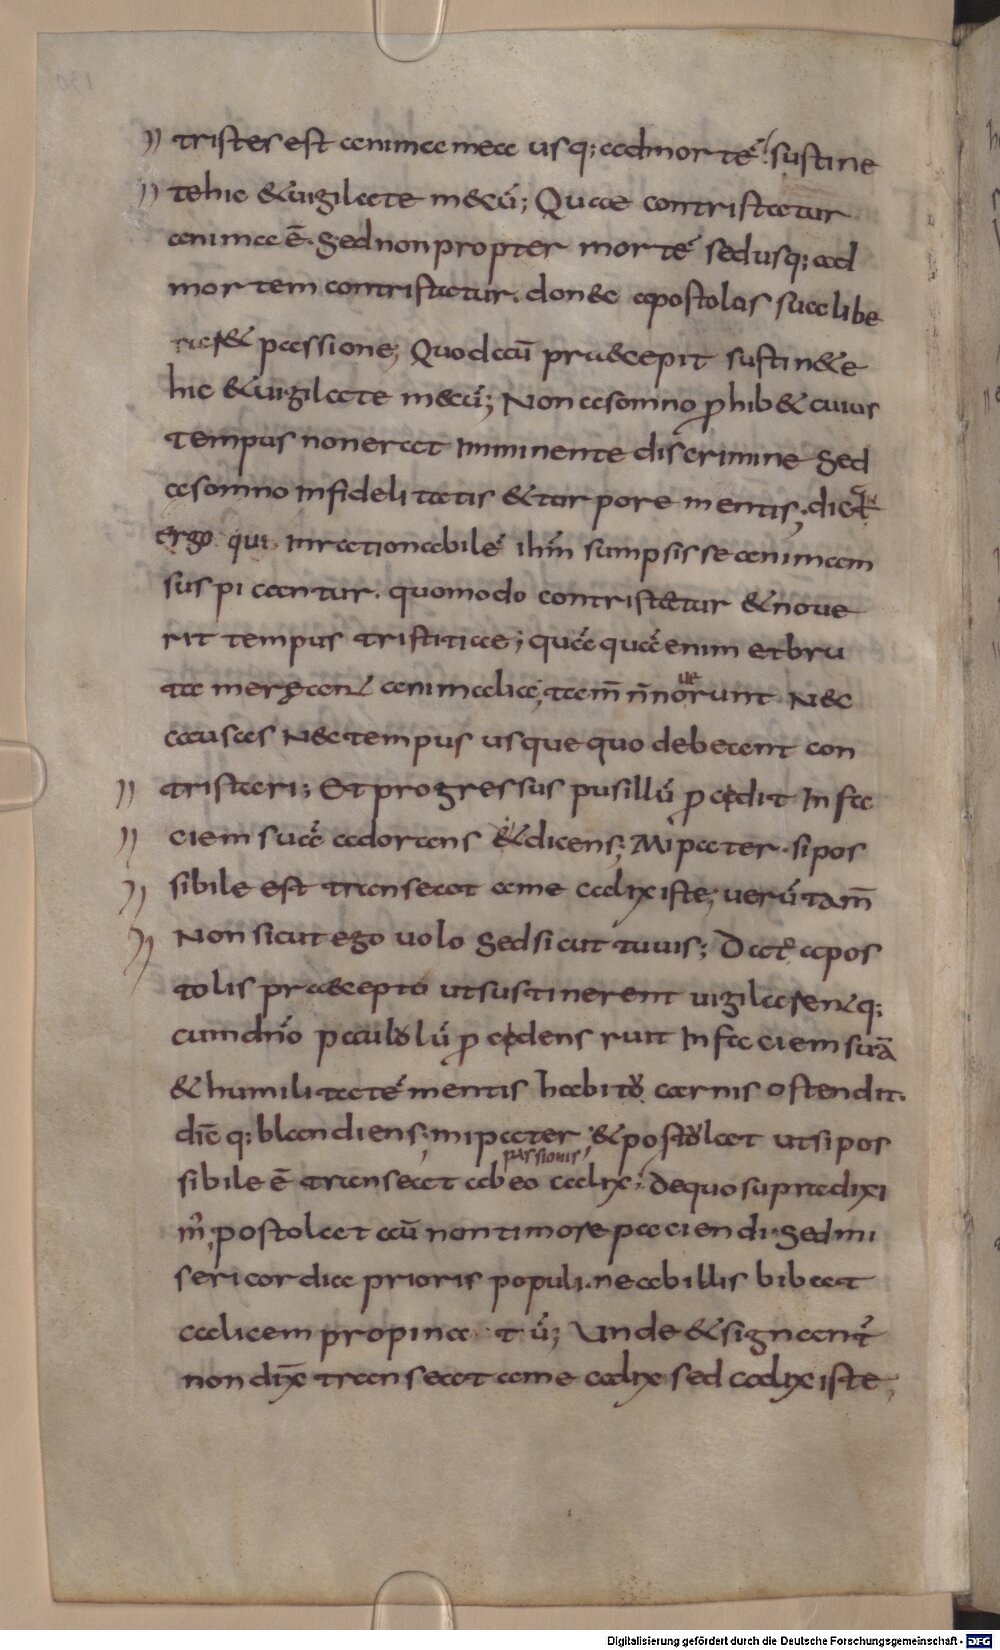 tristes est anima mea usq; admortē. sustine
tehic &uigilate m&cū; Quae contristatur
anima ē. Sed non propter mortē sed usq; ad
mortem contristatur. don&c apostolos sua libe
r&& passione; Quodautē praecepit sustin&e
hic &uigilate m&cū; Non a somno ꝓhib& cuius
tempus non erat Inminente discrimine Sed
a somno Infidelitatis & torpore mentis; dicat
ergo qui Inrationabilē ihm̄ sumpsisse animam
suspicantur. quomodo contristetur & noue
rit tempus tristitiae; quāquā enim et bru
ta mereant animalia; tam̄ ñ norunt N&c
causas N&c tempus usque quo debeant con
tristari; Et progressus pusillū ꝓcedit In fa
ciem suā adorans & dicens; Mi pater. si pos
sibile est transeat a me calix iste; uerūtam̄
Non sicut ego uolo Sed sicut tu uis; Dat̄ apos
tolis praecepto ut sustinerent uigilarentq;
cum dn̄o paululū ꝓcedens ruit In faciem suā
& humilitatē mentis habitu carnis ostendit.
dic̄q; blandiens; mi pater & postolat ut si pos
sibile ē transeat ab eo calix; De quo supra dixi
passionis
m̄; postolat aū non timore paciendi. Sed mi
sericordia prioris populi. ne ab illis bibat
calicem propinatū; Unde & signant̄
non dix̄ transeat a me calix sed calix iste;
Digitalisierung gefördert durch die Deutsche Forschungsgemeinschaft - DFG